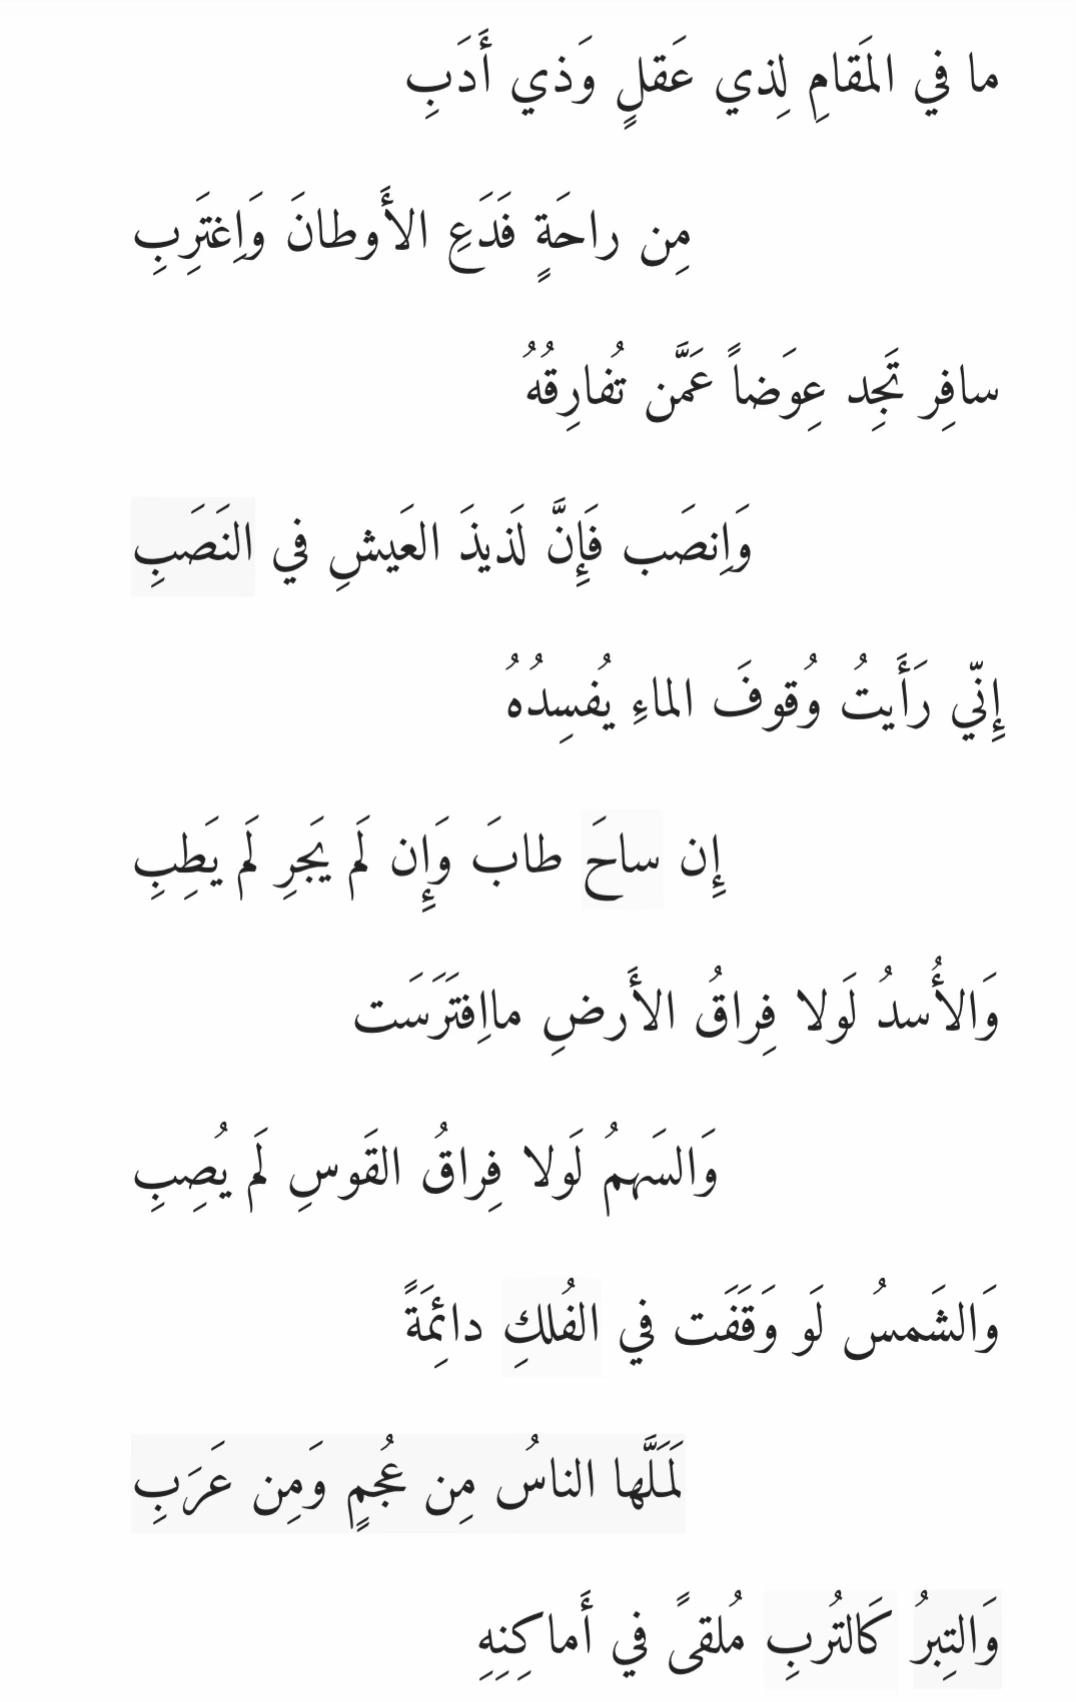 ما في المَقامِ لِذي عَقلٍ وَذي أَدَبِ
مِن راحَةٍ فَدَعِ الأَوطانَ وَاِغتَرِبِ
سافِر تَجِد عِوَضاً عَمَّن تُفارِقُهُ
وَاِنصَب فَإِنَّ لَذيذَ العَيشِ في النَصَبِ
إِنّي رَأَيتُ وُقوفَ الماءِ يُفسِدُهُ
إِن ساحَ طابَ وَإِن لَم يَجرِ لَم يَطِبِ
وَالأُسدُ لَولا فِراقُ الأَرضِ مااِفتَرَسَت
وَالسَهمُ لَولا فِراقُ القَوسِ لَم يُصِبِ
وَالشَمسُ لَو وَقَفَت في الفُلكِ دائِمَةً
لَمَلَّها الناسُ مِن عُجمٍ وَمِن عَرَبِ
وَالتِبرُ كَالتُربِ مُلقىً في أَماكِنِهِ